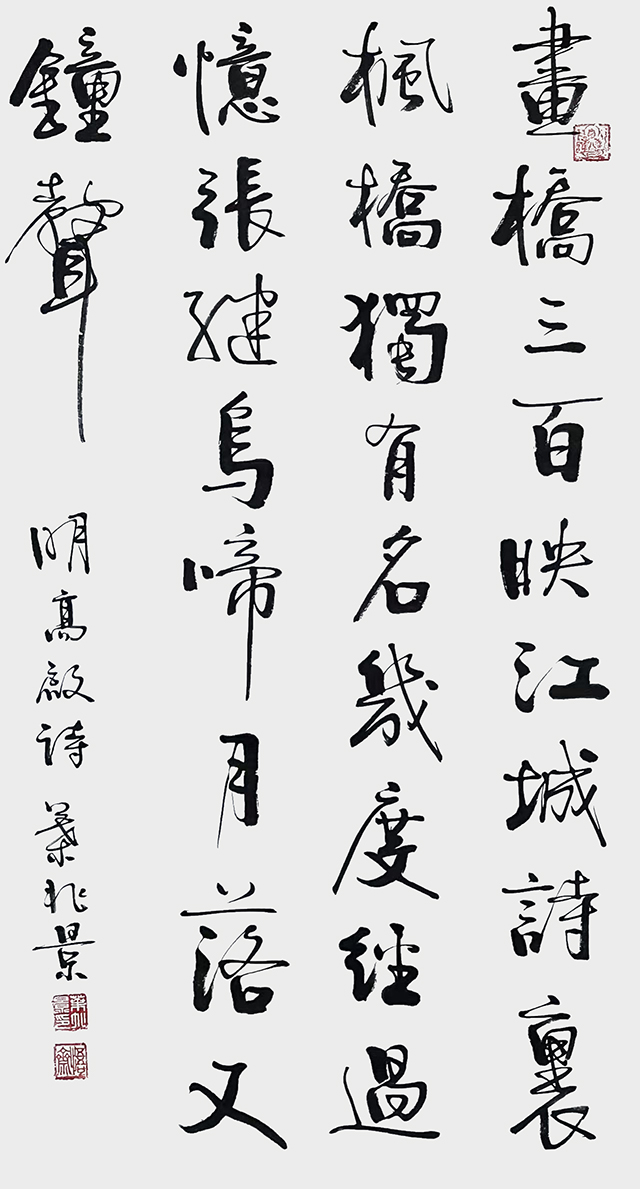 畫橋三百映江城詩裏
楓橋獨有名幾度經過
憶張繼烏啼月落又
鐘聲
明高啟詩 葉兆景